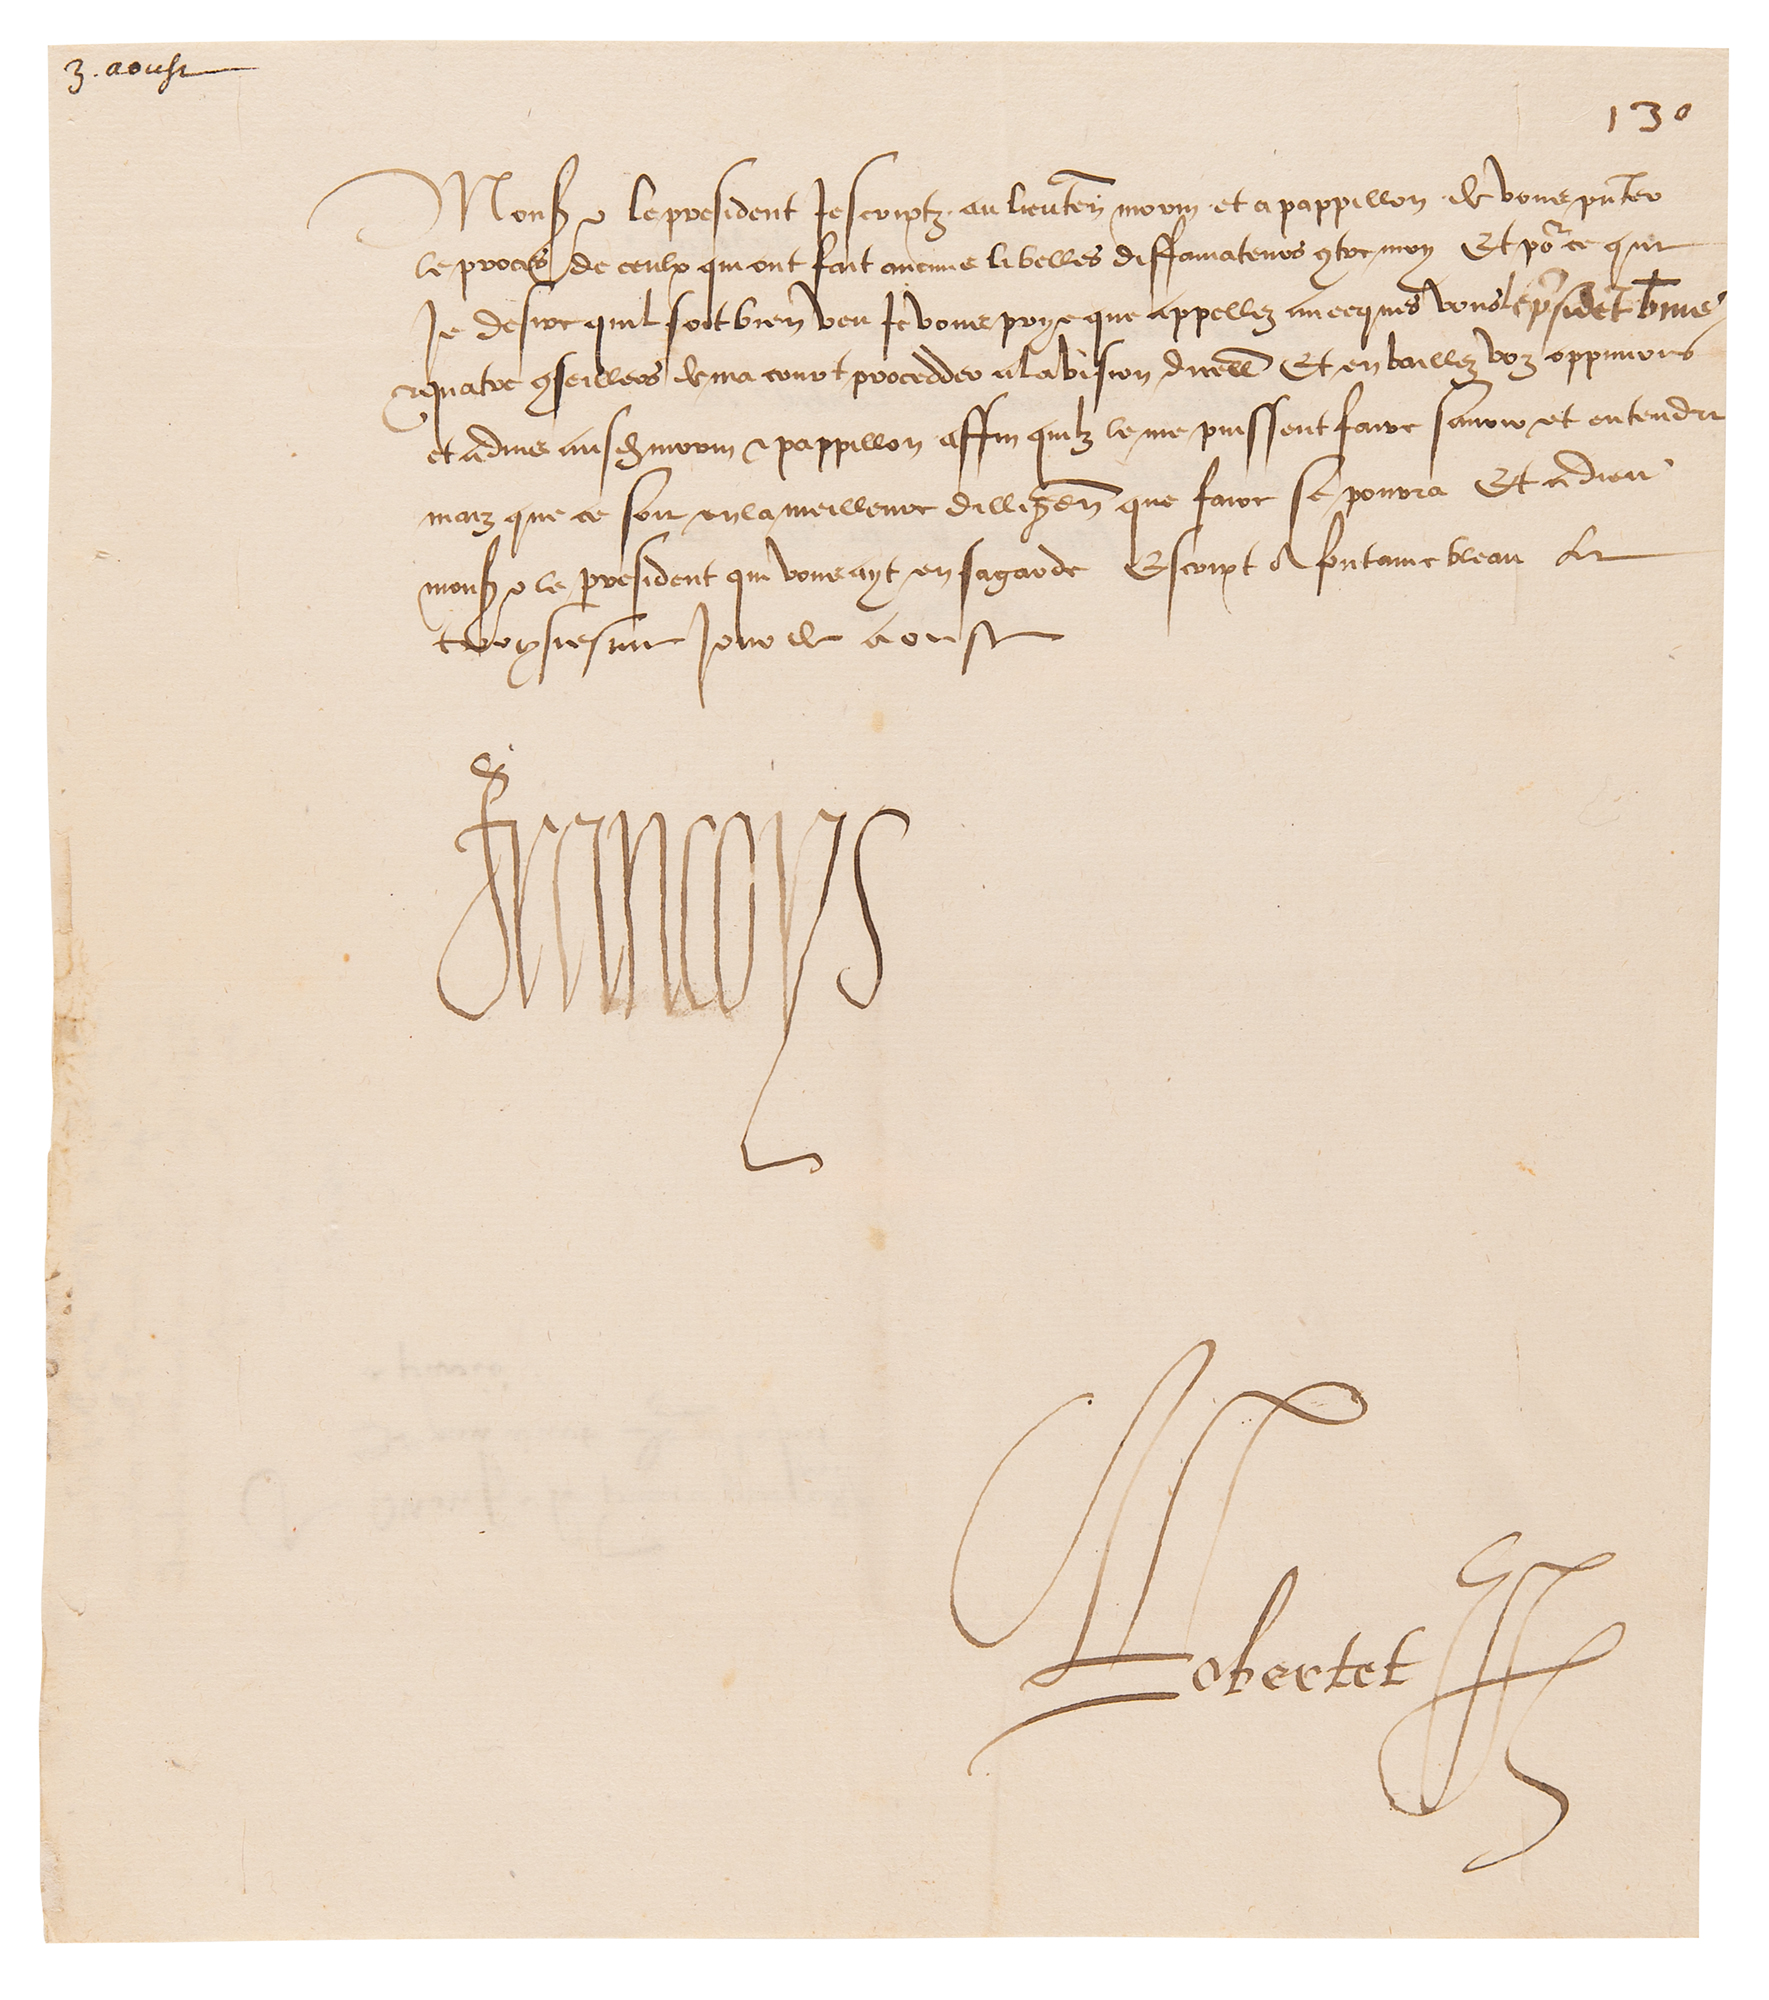 3. aoust
130
Monsr le president Jescriptz au lieuten morin et a pappillon de vous pnter
le proces de ceulx qui ont fait aucuns libelles diffamateurs contre moy Et por ce que
Je desire quil soit bien veu Je vous prye que appellez avecques vous le psidet
et quatre conseillers de ma court procedder a la vision dicell Et en baillez voz oppinions
et advis ausd morin et pappillon affin quilz le me puissent faire savoir et entendre
maiz que ce soit en la meilleure dilligen que faire se pourra Et adieu
monsr le president qui vous ayt en sa garde Escript a fontainebleau le
troysiesme Jour de aoust
Francoys
Robertet